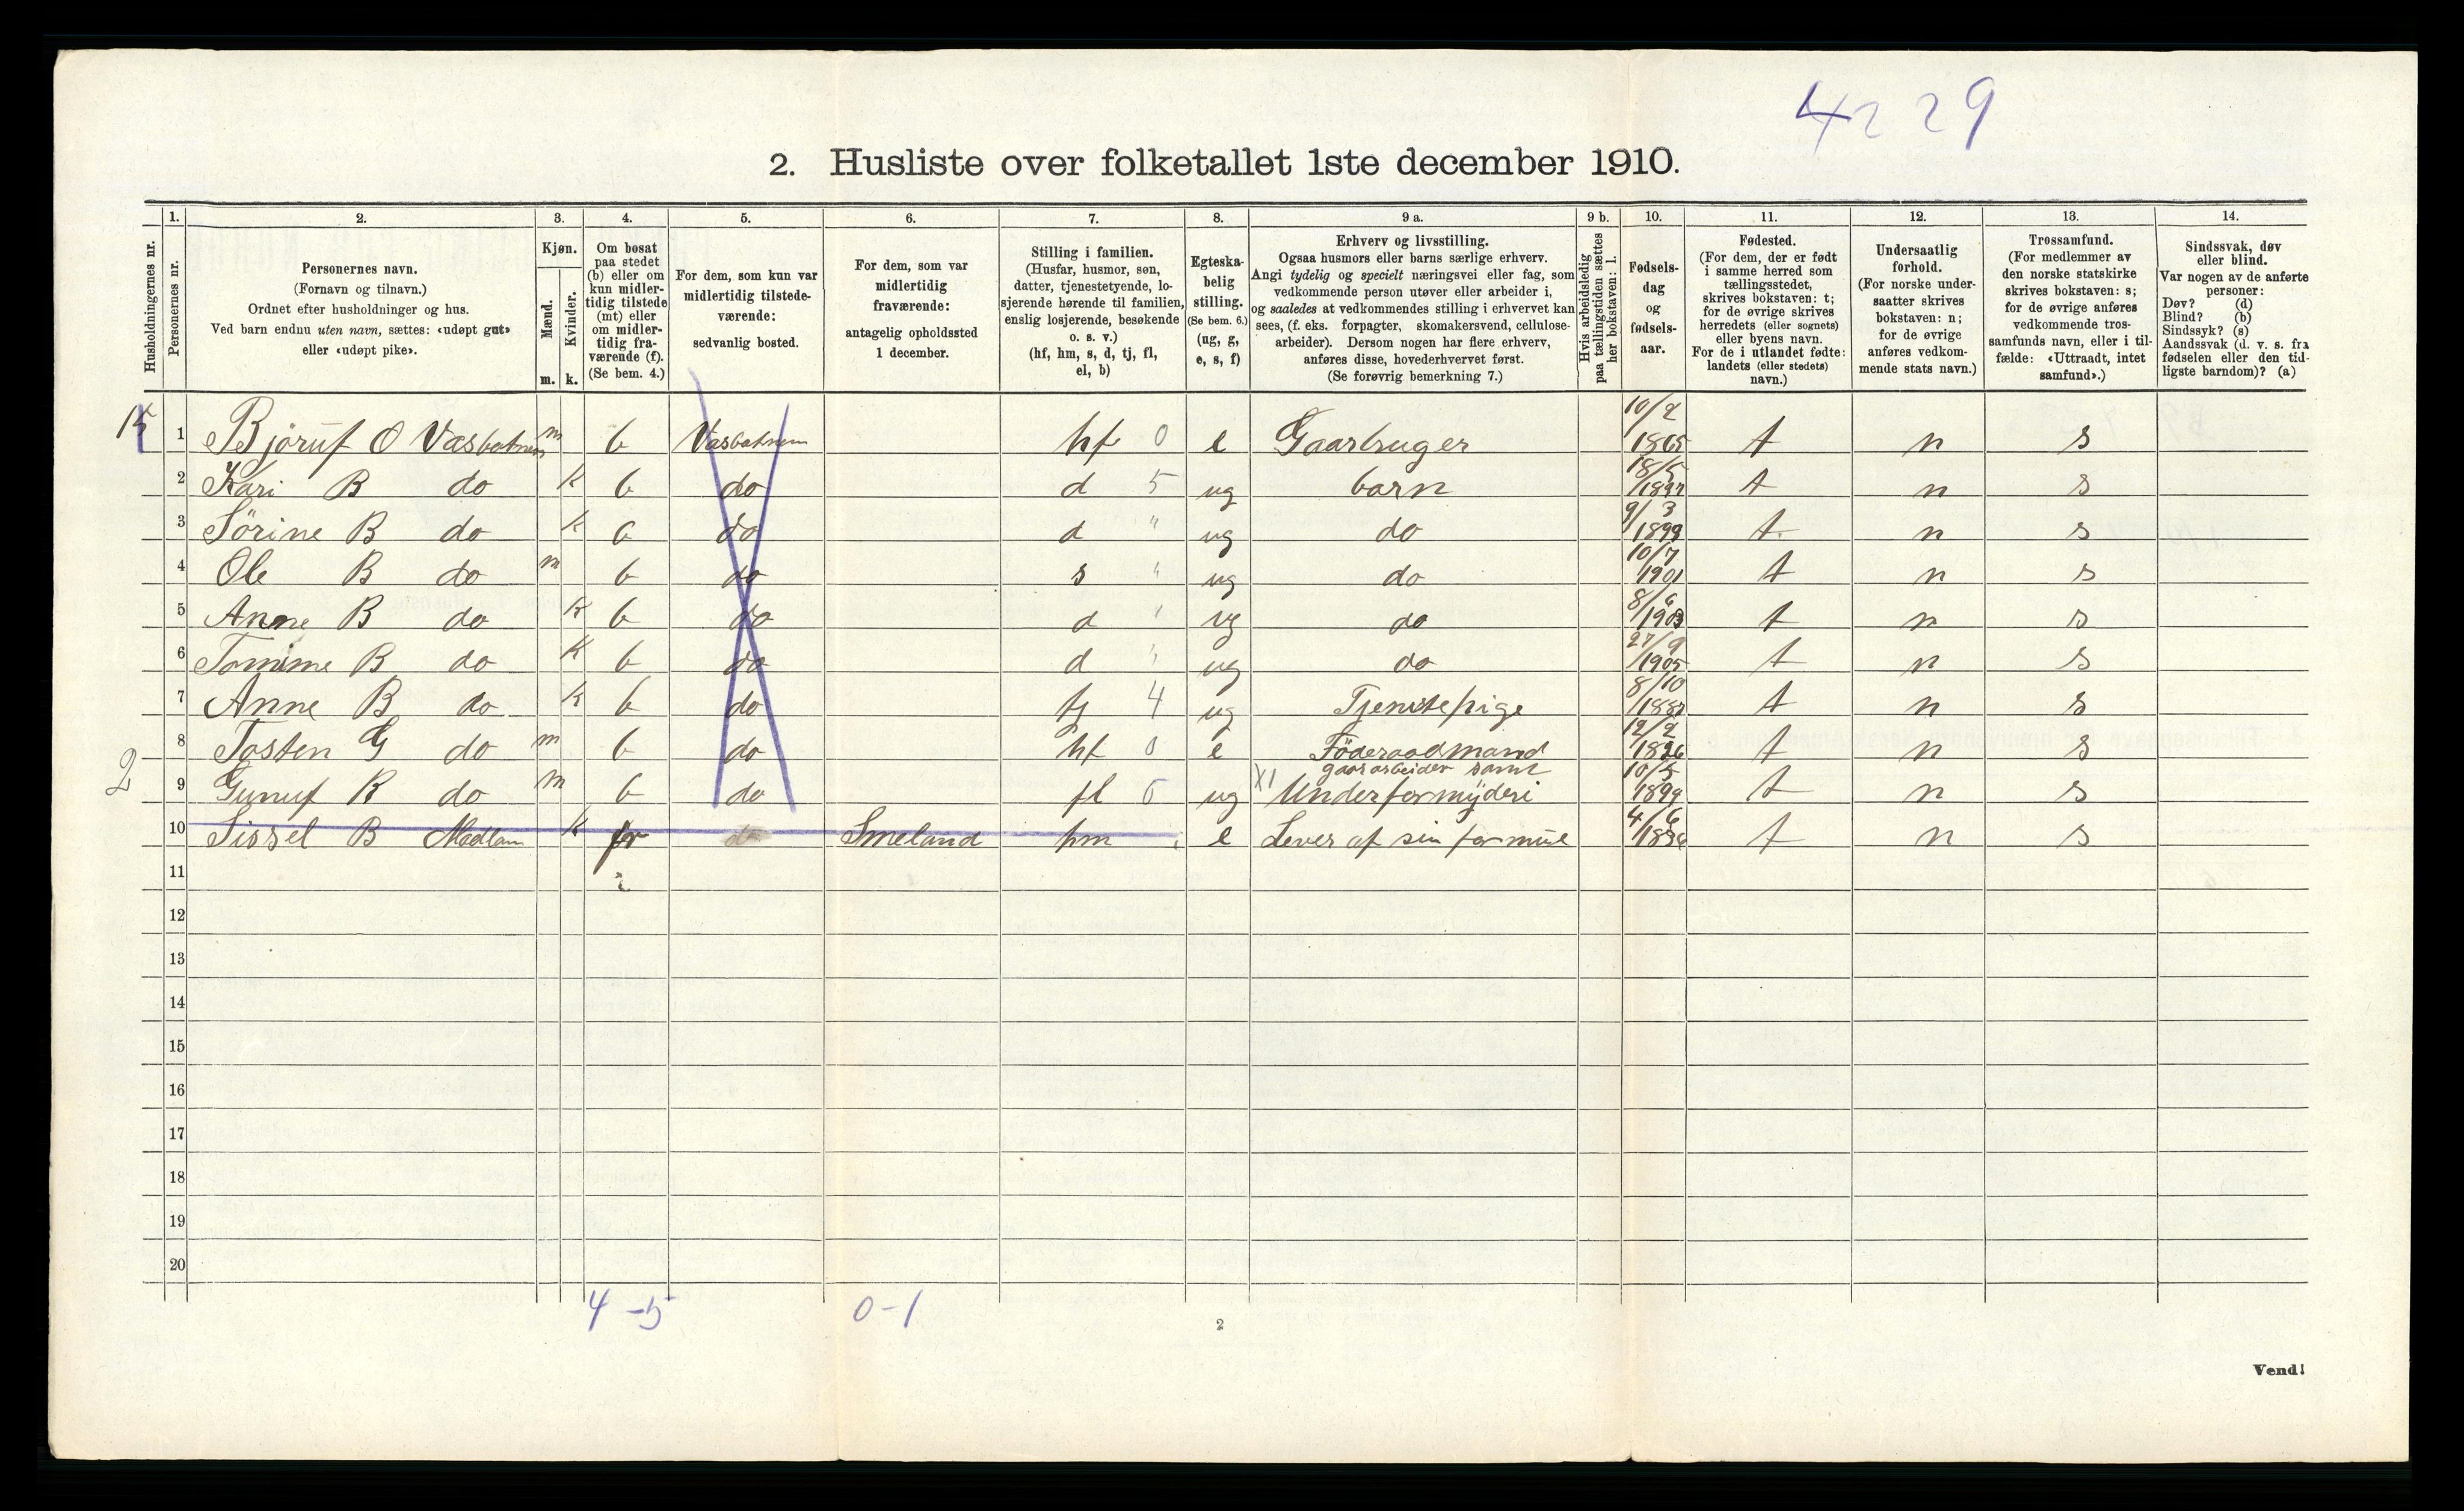 4229
2. Husliste over folketallet 1ste december 1910.
1. 2. 3. 4. 5. 6. 7. 8. 9 a. 9 b. 10. 11. 12. 13. 14.
Husholdningernes nr.
Personernes nr.
Personernes navn.
(Fornavn og tilnavn.)
Ordnet efter husholdninger og hus.
Ved barn endnu uten navn, sættes: «udøpt gut»
eller «udøpt pike».
Kjøn.
Mænd.
Kvinder.
m. k.
Om bosat
paa stedet
(b) eller om
kun midler-
tidig tilstede
(mt) eller
om midler-
tidig fra-
værende (f).
(Se bem. 4.)
For dem, som kun var
midlertidig tilstede-
værende:
sedvanlig bosted.
For dem, som var
midlertidig
fraværende:
antagelig opholdssted
1 december.
Stilling i familien.
(Husfar, husmor, søn,
datter, tjenestetyende, lo-
sjerende hørende til familien,
enslig losjerende, besøkende
o. s. v.)
(hf, hm, s, d, tj, fl,
el, b)
Egteska-
belig
stilling.
(Se bem. 6.)
(ug, g,
e, s, f)
Erhverv og livsstilling.
Ogsaa husmors eller barns særlige erhverv.
Angi tydelig og specielt næringsvei eller fag, som
vedkommende person utøver eller arbeider i,
og saaledes at vedkommendes stilling i erhvervet kan
sees, (f. eks. forpagter, skomakersvend, cellulose-
arbeider). Dersom nogen har flere erhverv,
anføres disse, hovederhvervet først.
(Se forøvrig bemerkning 7.)
Hvis arbeidsledig
paa tællingstiden sættes
her bokstaven: l.
Fødsels-
dag
og
fødsels-
aar.
Fødested.
(For dem, der er født
i samme herred som
tællingsstedet,
skrives bokstaven: t;
for de øvrige skrives
herredets (eller sognets)
eller byens navn.
For de i utlandet fødte:
landets (eller stedets)
navn.)
Undersaatlig
forhold.
(For norske under-
saatter skrives
bokstaven: n;
for de øvrige
anføres vedkom-
mende stats navn.)
Trossamfund.
(For medlemmer av
den norske statskirke
skrives bokstaven: s;
for de øvrige anføres
vedkommende tros-
samfunds navn, eller i til-
fælde: «Uttraadt, intet
samfund».)
Sindssvak, døv
eller blind.
Var nogen av de anførte
personer:
Døv? (d)
Blind? (b)
Sindssyk? (s)
Aandssvak (d. v. s. fra
fødselen eller den tid-
ligste barndom)? (a)
1 Björuf O Vasbotnen m b Vasbotnem hf 0 e Gaarbruger 10/2 1865 t n s
2 Kari B do k b do d 5 ug barn 18/5 t n s
3 Sörine B do k b do d " ug do 9/3 1899 t n s
4 Ole B do m b do s " ug do 10/7 1901 t n s
5 Anne B do k b do d " ug do 8/6 1903 t n s
6 B do k b do d " ug do 27/9 1905 t n s
7 Anne B do k b do tj 4 ug Tjenstepige 8/10 t n s
8 Tosten G do m b do hf 0 e Föderaadmand 12/2 1826 t n s
2 9 Gunuf R do m b do fl 6 ug gaararbeider samt Underformÿderi 10/5 t n s
10 Sissel B k Smeland hm e Lever af sin formue 4/6 t n s
11
12
13
14
15
16
17
18
19
20
4 - 5 0 - 1
2
Vend!